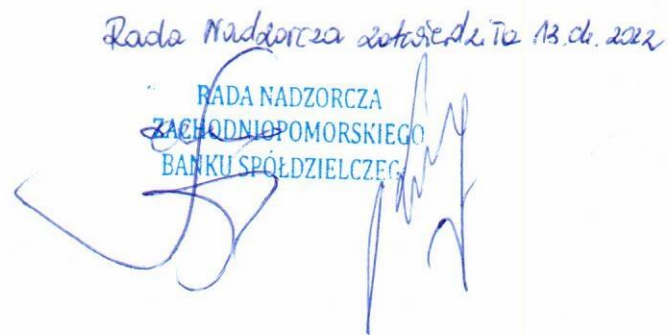 Rada Nadzorcza zatwierdziła 13.04.2022
RADA NADZORCZA
ZACHODNIOPOMORSKIEGO
BANKU SPÓŁDZIELCZEG